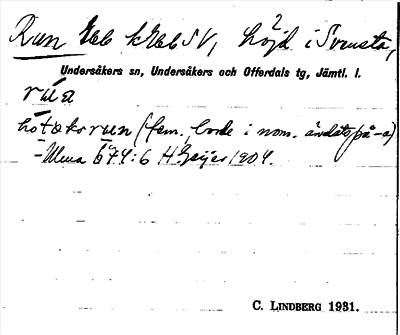 Run Eb kEbl SV, höjd i Svensta,
Undersåkers sn, Undersåkers och Offerdals tg, Jämtl. l.
rúa
hötaksrun (fem., borde i nom. ändats på -a)
Ulma 674:6 H Geijer 1904.
C. LINDBERG 1931.